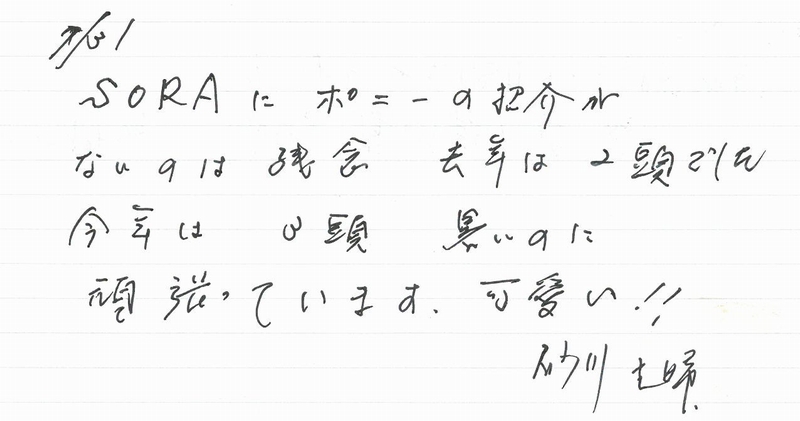 7/31
SORAに ポニーの紹介が
ないのは 残念 去年は 2頭でした
今年は 3頭 暑いのに
頑張っています. 可愛い!!
砂川 主婦